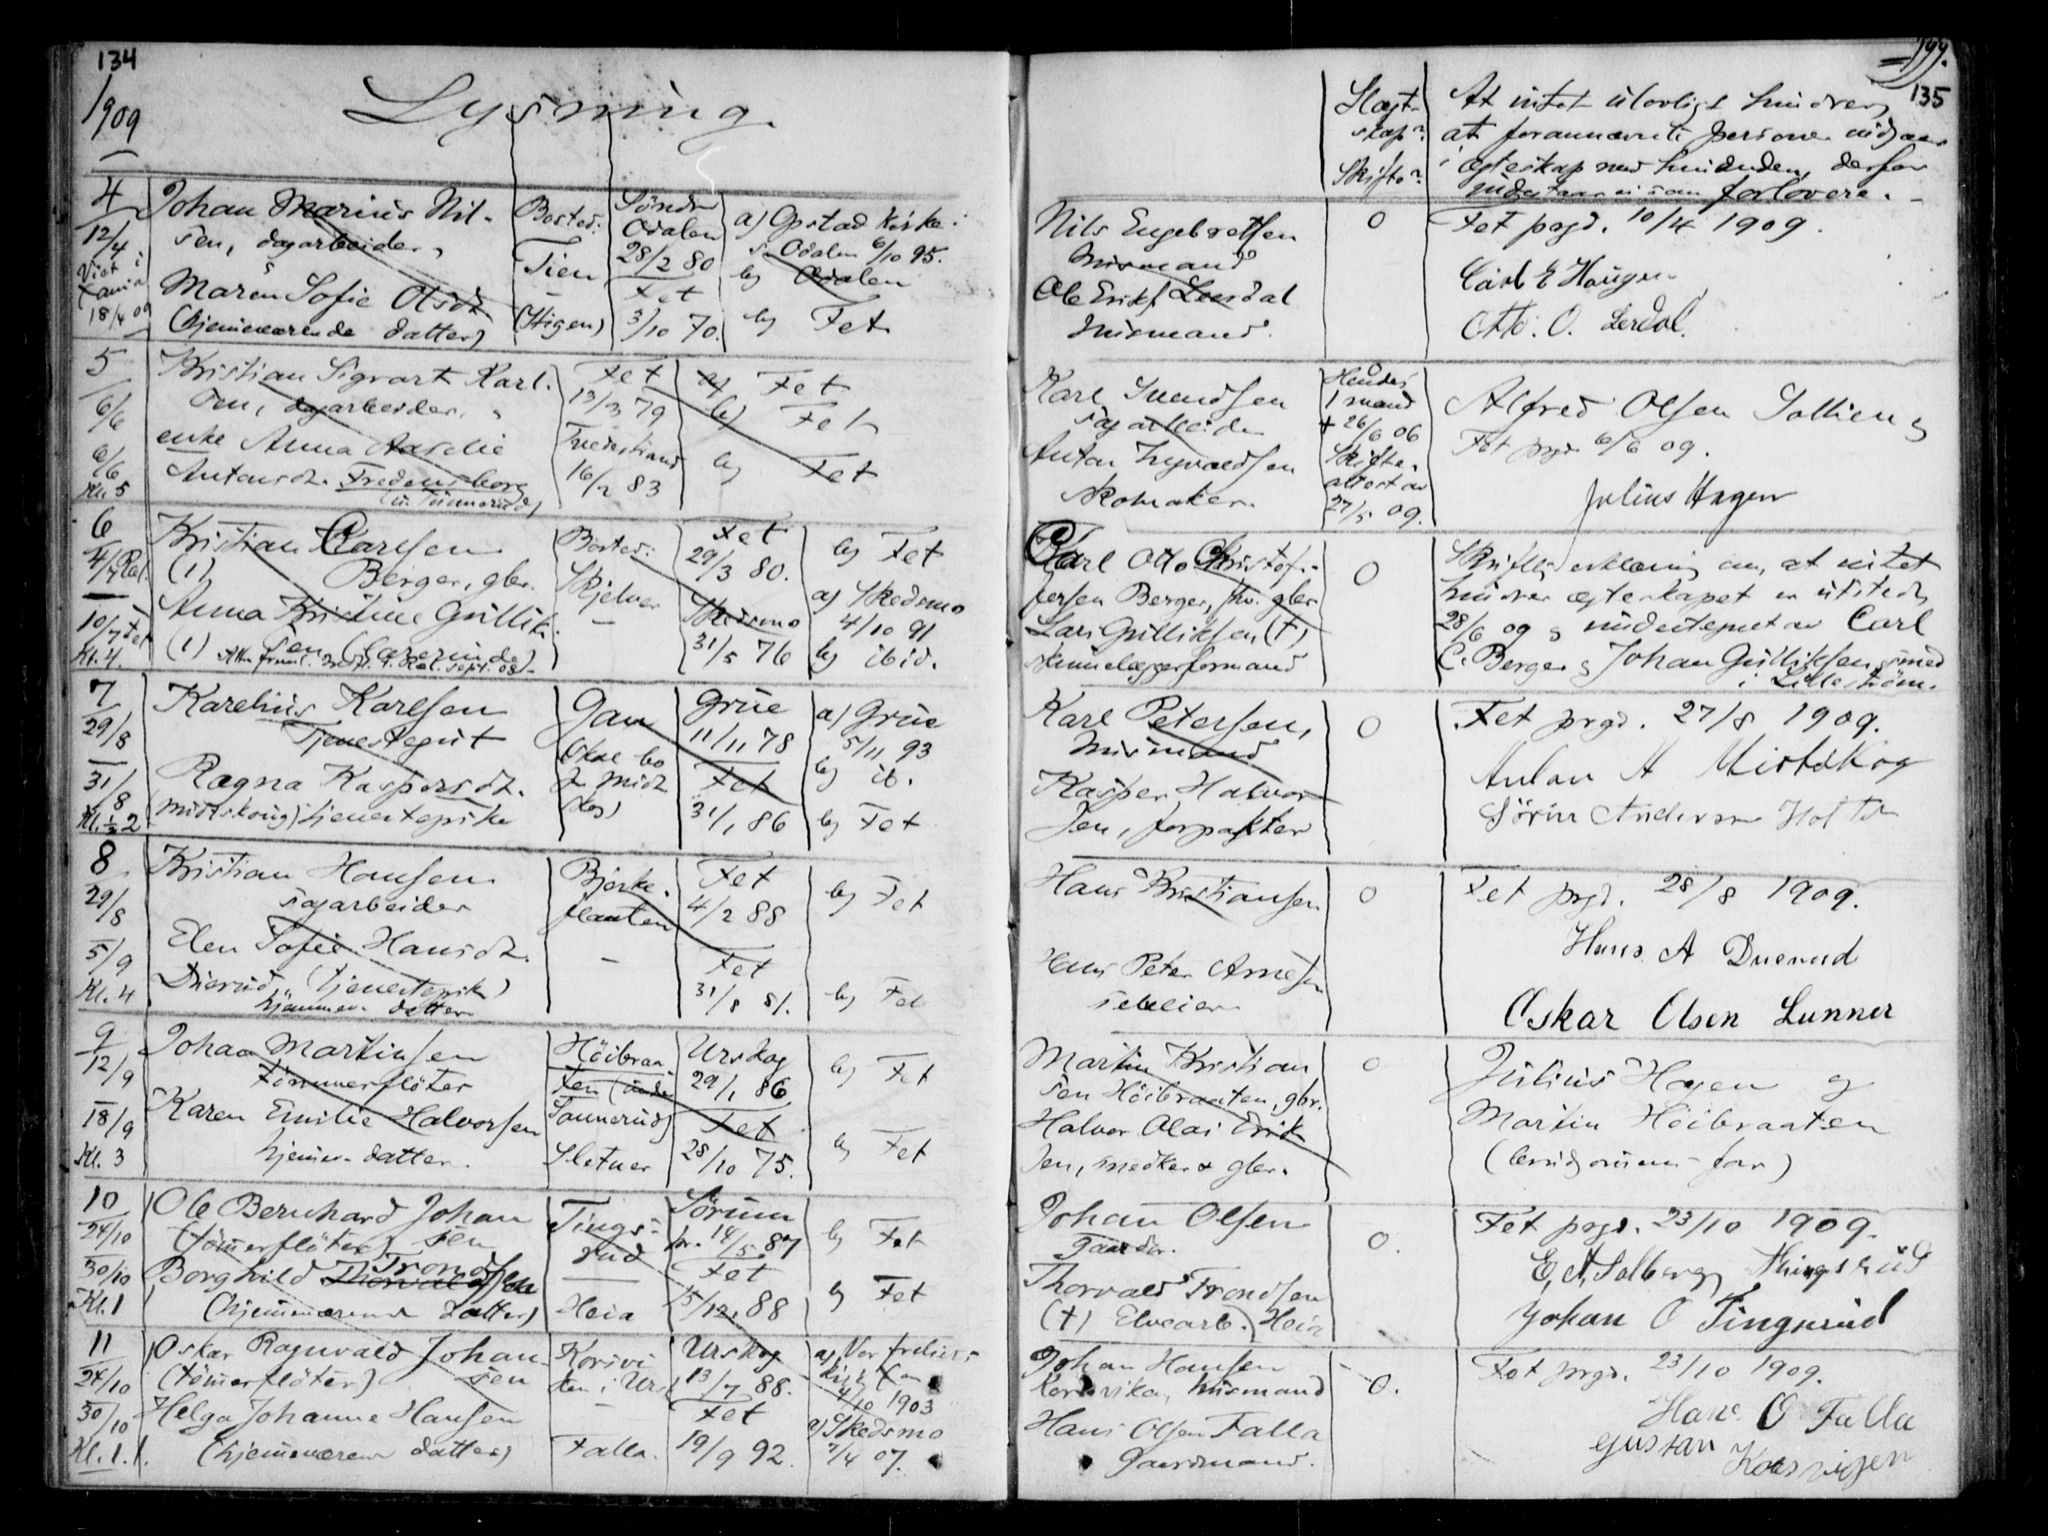 134
1909
Lysning.
4
12/4
Viet i
18/4 09
Johan Marius Nil-
sen, dagarbeider,
Maren Sofie Olsdt.
(hjemmeværende datter)
Bosted:
Tien
(Stigen)
Søndre
Odalen
28/2 80
Fet
3/10 70.
a) Opstad kirke
s. Odalen 6/10 95.
b) Odalen
b) Fet
5
6/6
6/6
Kl. 5
Kristian Sigvart Karl-
sen, dagarbeider,
enke Anna Aaselie
Antonsdt. Fredensborg
Fet
13/3 79
16/2 83
a) Fet
b) Fet
b) Fet
6
4/7 Ræl.
10/7 Fet
Kl. 4.
Kristian Carlsen
(1) Berger, gbr.
Anna Kristine Gullik-
(1) sen
Bosted:
Skjelver
Fet
29/3 80.
Skedsmo
31/5 76
b) Fet
a) Skedsmo
4/10 91
b) ibid.
7
29/8
31/8
Kl. 1/2 2
Karelius Karlsen
Tjenestegut
Ragna Kaspersdt.
(Midtskoug) tjenestepike
Gan
(skal bo
p. Midt
skog)
Grue
11/11 78
Fet
31/1 86
a) Grue
5/11 93
b) ib.
b) Fet
8
29/8
5/9
Kl. 4
Kristian Hansen
sagarbeider
Elen Sofie Hansdt.
Duerud, (tjenestepike)
hjemmev. datter
Bjerke-
flaaten
Fet
4/2 88
Fet
31/8 81.
b) Fet
b) Fet
9
12/9
18/9
Kl. 3
Johan Martinsen
tømmerfløter
Karen Emilie Halvorsen
hjemmev. datter.
Høibraa-
ten (under
Tannerud)
Sletner
Urskog
29/1 86
Fet
28/10 75.
b) Fet
b) Fet
10
24/10
30/10
Kl. 1
Ole Bernhard Johan
(tømerfløter) sen
Borghild Trondsen
(hjemmeværende datter)
Tings-
rud
Heia
Sørum
14/5 87
Fet
15/12 88
b) Fet
b) Fet
11
24/10
30/10
Kl. 1.
Oskar Ragnvald Johan-
(tømerfløter) sen
Helga Johanne Hansen
(hjemmeværende datter)
Korsvi
ken i Ursk
Falla.
Urskog
13/7 88.
Fet
19/9 92.
a) Vor frelsers
4/10 1903
a) Skedsmo
7/4 07.
199.
135
Slegt-
skap?
Skifte?
At intet ulovligt hindrer,
at forannævnte personer indgaar
i egteskap med hinanden, derfor
indestaar vi som forlovere.
Nils Engebretsen
husmand
Ole Eriks. Lerdal
husmand.
0
Fet prgd. 10/4 1909.
Carl E Haugen
Otto. O. Lerdal.
Karl Svendsen
sagarbeider
Anton Syvaldsen
skomaker.
0
Hendes
1 mand
+ 26/6 06
Skifte-
attest av
27/5 09.
Alfred Olsen Sollien og
Fet prgd 6/6 09.
Julius Hagen
Carl Otto Christof-
fersen Berger, fhv. gbr
Lars Gulliksen, (+)
skinnelæggerformand
0
Skriftlig erklæring om, at intet
hindrer egteskapet er utstedt
28/6 09 og undertegnet av Carl
C. Berger og Johan Gulliksen, smed
i Lillestrøm.
Karl Petersen,
husmand
Kasper Halvor-
sen, forpakter
0
Fet prgd. 27/8 1909.
Anton A Mistskog
Sørine Andersen Holter
Hans Kristiansen
Hans Peter Arnesen
selveier
0
Fet prgd. 28/8 1909.
Hans. A Duerud
Oskar Olsen Lunner
Martin Kristian
sen Høibraaten, gbr.
Halvor Olai Erik
sen, snedker & gbr.
0
Julius Hagen og
Martin Høibraaten
(brudgommens far)
Johan Olsen
Gaardbr.
Thorvald Trondsen
(+) Elvearb. Heia
0.
Fet prgd. 23/10 1909.
E, A, Solberg, Thingsrud
Johan O Tingsrud
Johan Hansen
Korsviken, husmand
Hans Olsen Falla
Gaardmand.
0.
Fet prgd. 23/10 1909.
Hans O Falla
Gustav Korsvigen